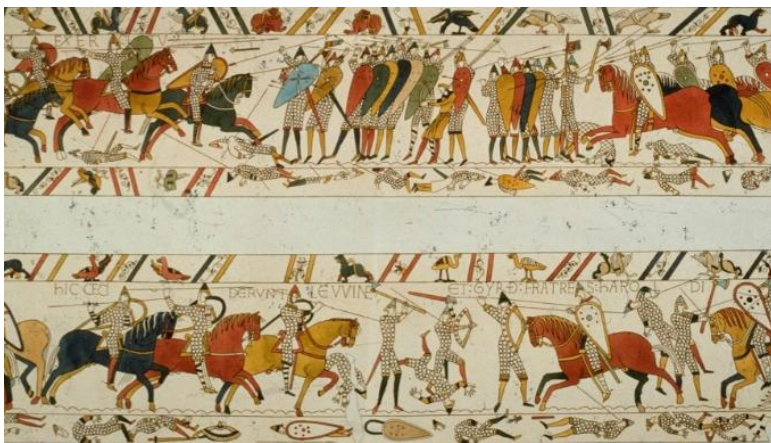 EXER VS
hIC CECI DERVNT LEVVIN ET: GYRÐ: FRATRES: hARO DI